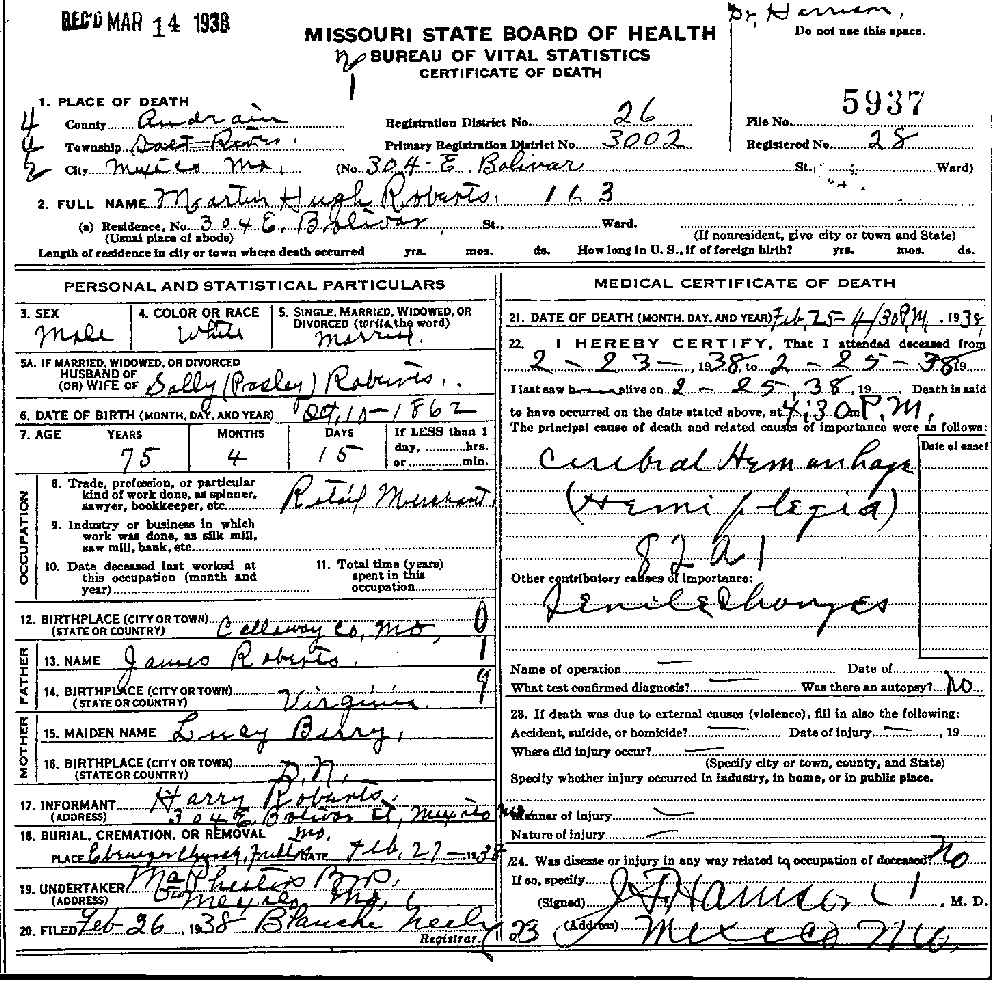 REC'D MAR 14 1938
Dr. Harrison,
Do not use this space.
MISSOURI STATE BOARD OF HEALTH
BUREAU OF VITAL STATISTICS
CERTIFICATE OF DEATH
5937
1. PLACE OF DEATH
County Audrain Registration District No. 26 File No.
Township Salt River Primary Registration District No. 3002 Registered No. 28
City Mexico Mo. (No. 304-E. Bolivar St., Ward)
2. FULL NAME Martin Hugh Roberts. 163
(a) Residence, No. 304 E. Bolivar St. Ward.
(Usual place of abode) (If nonresident, give city or town and State)
Length of residence in city or town where death occurred yrs. mos. ds. How long in U. S., if of foreign birth? yrs. mos. ds.
PERSONAL AND STATISTICAL PARTICULARS
3. SEX Male
4. COLOR OR RACE White
5. SINGLE, MARRIED, WIDOWED, OR DIVORCED (write the word) Married.
5A. IF MARRIED, WIDOWED, OR DIVORCED
HUSBAND OF
(OR) WIFE OF Sally (Pasley) Roberts.
6. DATE OF BIRTH (MONTH, DAY, AND YEAR) Oct. 10-1862
7. AGE YEARS MONTHS DAYS If LESS than 1
day, hrs.
75 4 15 or min.
OCCUPATION
8. Trade, profession, or particular
kind of work done, as spinner,
sawyer, bookkeeper, etc. Retail Merchant
9. Industry or business in which
work was done, as silk mill,
saw mill, bank, etc.
10. Date deceased last worked at
this occupation (month and
year)
11. Total time (years)
spent in this
occupation
12. BIRTHPLACE (CITY OR TOWN)
(STATE OR COUNTRY) Callaway Co, Mo, 0
FATHER
13. NAME James Roberts. 1
14. BIRTHPLACE (CITY OR TOWN)
(STATE OR COUNTRY) Virginia. 9
MOTHER
15. MAIDEN NAME Lucy Berry,
16. BIRTHPLACE (CITY OR TOWN)
(STATE OR COUNTRY) D.N.
17. INFORMANT Harry Roberts.
(ADDRESS) 304 E. Bolivar St, Mexico Mo.
18. BURIAL, CREMATION, OR REMOVAL Mo.
PLACE Ebenezer Church, DATE Feb. 27-1938
19. UNDERTAKER Bros.
(ADDRESS) Mexico Mo.
20. FILED Feb-26, 1938 Blanche Neely
Registrar.
MEDICAL CERTIFICATE OF DEATH
21. DATE OF DEATH (MONTH, DAY, AND YEAR) Feb, 25-4/30PM. 1938
22. I HEREBY CERTIFY, That I attended deceased from
2-23-, 1938, to 2-25-38 19
I last saw alive on 2-25, 38, 19 Death is said
to have occurred on the date stated above, at 4:30 P.M.
The principal cause of death and related causes of importance were as follows:
Date of onset
Cerebral Hemorrhage
(Hemiplegia)
82a1
Other contributory causes of importance:
Senile Changes
Name of operation — Date of
What test confirmed diagnosis? — Was there an autopsy? No
23. If death was due to external causes (violence), fill in also the following:
Accident, suicide, or homicide? — Date of injury —, 19
Where did injury occur? —
(Specify city or town, county, and State)
Specify whether injury occurred in industry, in home, or in public place.
Manner of injury —
Nature of injury —
24. Was disease or injury in any way related to occupation of deceased? No
If so, specify
(Signed) J. F. Harrison, M. D.
23 (Address) Mexico Mo.